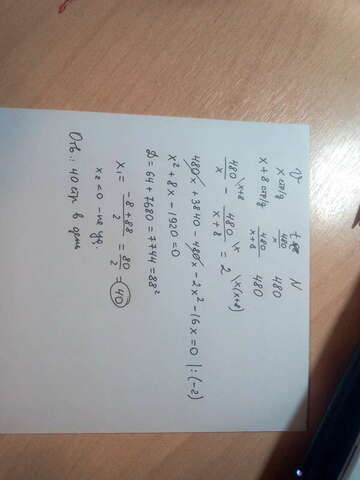 V t N
x стр/д 480/x 480
x + 8 стр/д 480/x+8 480
480/x \x+8 - 480/x+8 \x = 2 \x(x+8)
480x + 3840 - 480x - 2x² - 16x = 0 |:(-2)
x² + 8x - 1920 = 0
D = 64 + 7680 = 7744 = 88²
x₁ = -8+88/2 = 80/2 = 40
x₂ < 0 - не уд.
Отв.: 40 стр в день